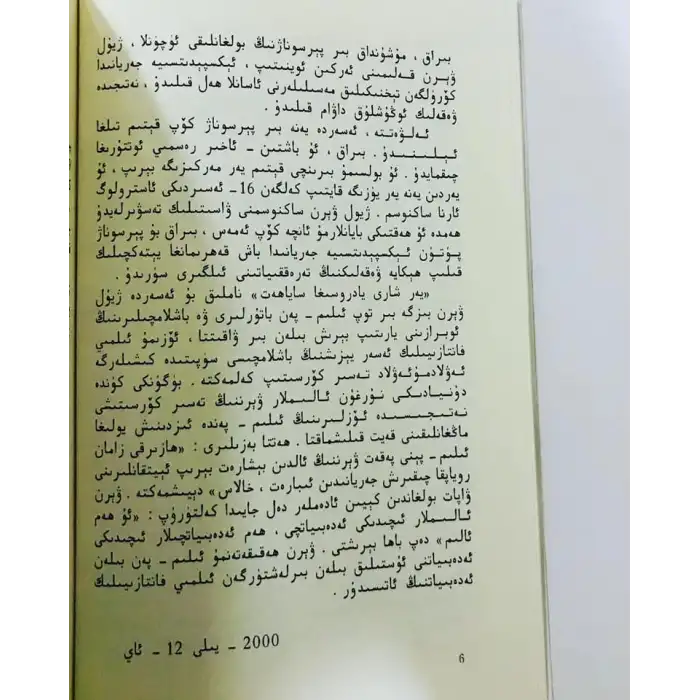 بىراق، مۇشۇنداق بىر پېرسوناژنىڭ بولغانلىقى ئۈچۈنلا، ژيۇل
ۋېرن قەلىمىنى ئەركىن ئوينىتىپ، ئېكسپېدىتسىيە جەريانىدا
كۆرۈلگەن تېخنىكىلىق مەسىلىلەرنى ئاسانلا ھەل قىلىدۇ، نەتىجىدە
ۋەقەلىك ئوڭۇشلۇق داۋام قىلىدۇ.
ئەلۋەتتە، ئەسەردە يەنە بىر پېرسوناژ كۆپ قېتىم تىلغا
ئېلىنىدۇ. بىراق، ئۇ باشتىن - ئاخىر رەسمىي ئوتتۇرىغا
چىقمايدۇ. ئۇ بولسىمۇ بىرىنچى قېتىم يەر مەركىزىگە بېرىپ، ئۇ
يەردىن يەنە يەر يۈزىگە قايتىپ كەلگەن 16- ئەسىردىكى ئاسترولوگ
ئارنا ساكنوسم. ژيول ۋېرن ساكنوسمنى ۋاسىتىلىك تەسۋىرلەيدۇ
ھەمدە ئۇ ھەقتىكى بايانلارمۇ ئانچە كۆپ ئەمەس، بىراق بۇ پېرسوناژ
پۈتۈن ئېكسپېدىتسىيە جەريانىدا باش قەھرىمانغا يېتەكچىلىك
قىلىپ ھېكايە ۋەقەلىكىنىڭ تەرەققىياتىنى ئىلگىرى سۈرىدۇ.
«يەر شارى يادروسىغا ساياھەت» ناملىق بۇ ئەسەردە ژيۇل
ۋېرن بىزگە بىر توپ ئىلىم - پەن باتۇرلىرى ۋە باشلامچىلىرىنىڭ
ئوبرازىنى يارىتىپ بېرىش بىلەن بىر ۋاقىتتا، ئۆزىمۇ ئىلمىي
فانتازىيىلىك ئەسەر يېزىشنىڭ باشلامچىسى سۈپىتىدە كىشىلەرگە
ئەۋلادمۇئەۋلاد تەسىر كۆرسىتىپ كەلمەكتە. بۈگۈنكى كۈندە
دۇنيادىكى نۇرغۇن ئالىملار ۋېرننىڭ تەسىر كۆرسىتىشى
نەتىجىسىدە ئۆزلىرىنىڭ ئىلىم - پەندە ئىزدىنىش يولىغا
ماڭغانلىقىنى قەيت قىلىشماقتا. ھەتتا بەزىلىرى: «ھازىرقى زامان
ئىلىم - پېنى پەقەت ۋېرننىڭ ئالدىن بېشارەت بېرىپ ئېيتقانلىرىنى
روياپقا چىقىرىش جەريانىدىن ئىبارەت، خالاس» دېيىشمەكتە. ۋېرن
ۋاپات بولغاندىن كېيىن ئادەملەر دەل جايىدا كەلتۈرۈپ: «ئۇ ھەم
ئالىملار ئىچىدىكى ئەدەبىياتچى، ھەم ئەدەبىياتچىلار ئىچىدىكى
ئالىم» دەپ باھا بېرىشتى. ۋېرن ھەقىقەتەنمۇ ئىلىم - پەن بىلەن
ئەدەبىياتنى ئۈستىلىق بىلەن بىرلەشتۈرگەن ئىلمىي فانتازىيىلىك
ئەدەبىياتنىڭ ئاتىسىدۇر.
2000 - يىلى 12 - ئاي
6